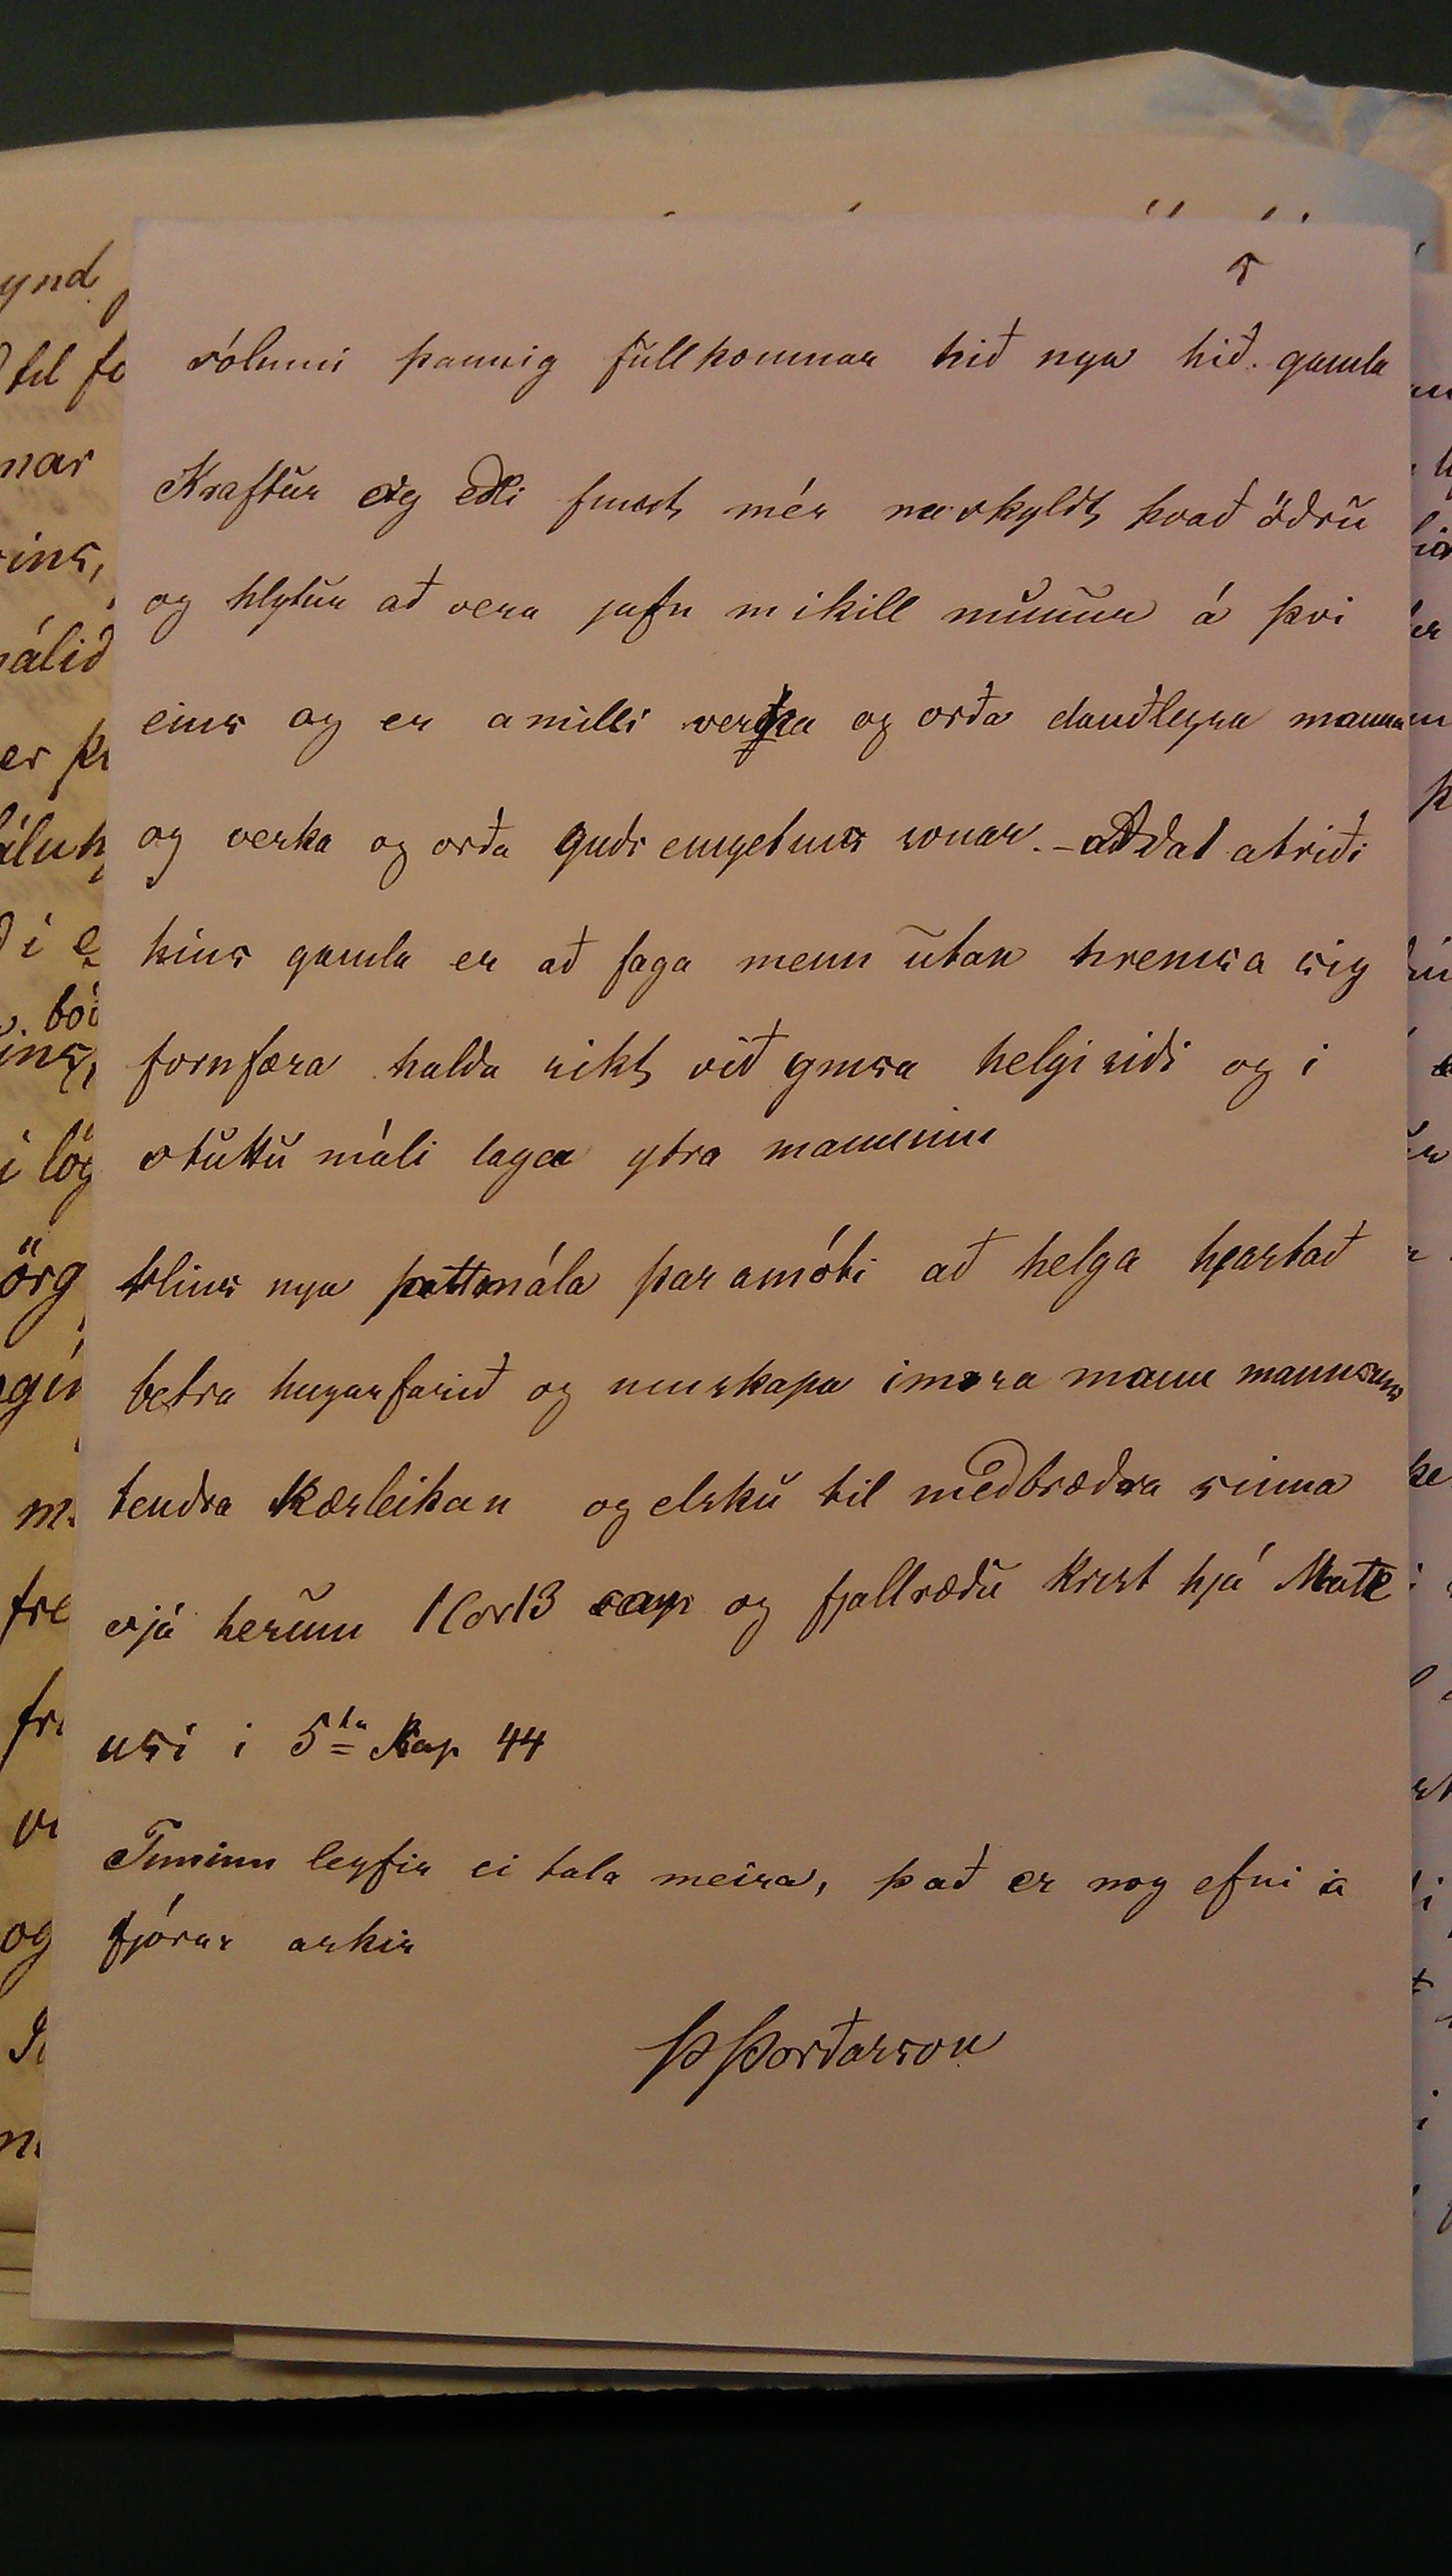 5
sólunni þannig fullkomnar hið nya hið gamla
Kraftur og edli finnst mér nærskyldt hvað öðru
og hlytur að vera jafn mikill munur á þvi
eins og er a milli verka og orða dauðlegra manna
og verka og orða guds eingetins sonar. - Adal atriði
hins gamla er að faga menn utan hreinsa sig
fornfæra halda rikt við ymsa helgi sidi og i
stuttu máli laga ytra manninn
Hins nya sáttmála þar amóti að helga hjartað
betra hugarfarið og umskapa innra mann mannsins
tendra Kærleikan og elsku til medbrædra sinna
sjá herum 1 Cor 13 cap og fjallrædu Krist hjá Matte
usi i 5ta Kap 44
Timinn leyfir ei tala meira, það er nog efni á
fjórar arkir
Þ Þorðarson